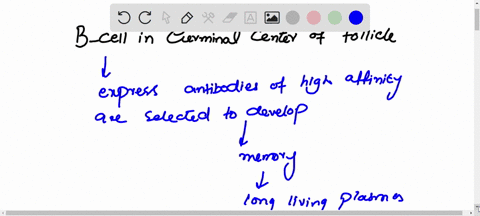 B-cell in Germinal Center of follicle
express antibodies of high affinity
are selected to develop
memory
long living plasmas